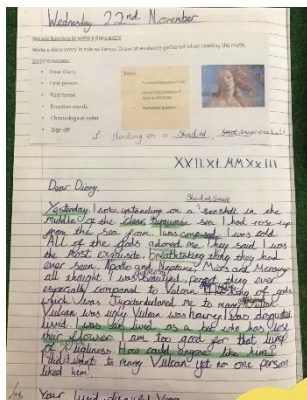 Wednesday 22nd November
We are learning to write a diary entry
Write a diary entry in role as Venus. Draw on evidence gathered when reading the myth.
• Dear diary,
• First person
• Past tense
• Emotion words
• Chronological order
• Sign off
standing on a
XXII.XI.MMXXIII
Dear Diary,
Yesterday, I woke up standing on a seashell in the
middle of the clear turquoise sea. I had rose up
from the sea foam. I was I was told
All of the gods adored me. They said I was
the most exquisite, breathtaking thing they had
ever seen. Apollo and Neptune, Mars and Mercury
all thought I was beautiful thing ever
especially compared to Vulcan. king of gods
which was Jupiter me to marry Vulcan
Vulcan was ugly. Vulcan was I was disgusted
livid. I was as livid as a bee who has lost
their flower. I am too good for that lump
of ugliness. How could anyone like him?
I didn't want to marry Vulcan yet no one person
liked him.
Your livid